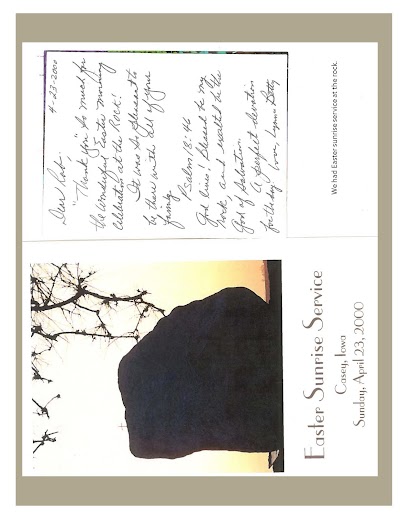 4-23-2000
Dear Rob,
"Thank you" so much for
the wonderful Easter morning
Celebration at the Rock!
It was so pleasant to
be there with all of your
family.
Psalm 18:46
God lives! Blessed be my
Rock, and exalted be the
God of Salvation.
A perfect devotion
for the day! Love,
We had Easter sunrise service at the rock.
Easter Sunrise Service
Casey, Iowa
Sunday, April 23, 2000